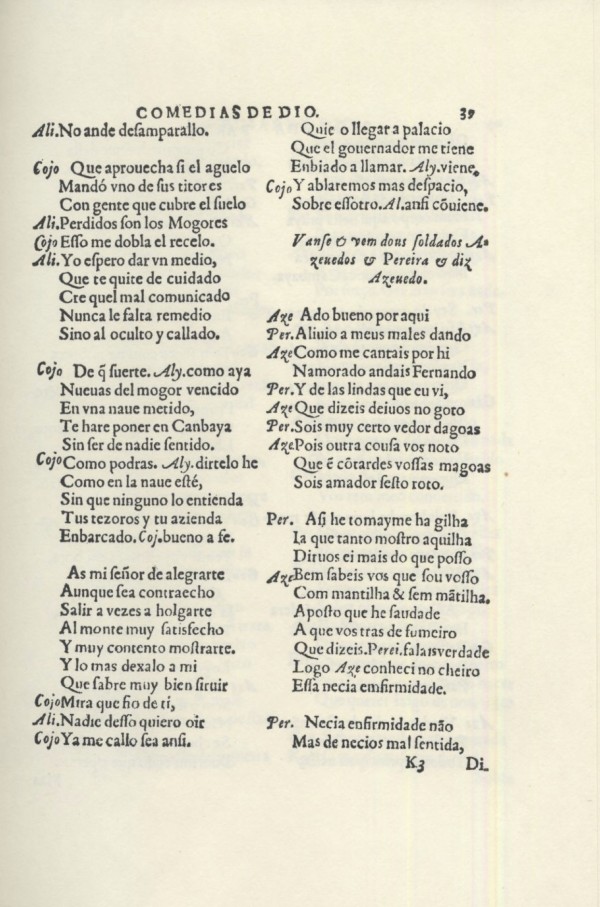 COMEDIAS DE DIO. 39
Ali. No ande desamparallo.
Cojo Que aprouecha si el aguelo
Mandó vno de sus titores
Con gente que cubre el suelo
Ali. Perdidos son los Mogores
Cojo Esso me dobla el recelo.
Ali. Yo espero dar vn medio,
Que te quite de cuidado
Cre quel mal comunicado
Nunca le falta remedio
Sino al oculto y callado.
Cojo De q̃ suerte. Aly. como aya
Nueuas del mogor vencido
En vna naue metido,
Te hare poner en Canbaya
Sin ser de nadie sentido.
Cojo Como podras. Aly. dirtelo he
Como en la naue esté,
Sin que ninguno lo entienda
Tus tezoros y tu azienda
Enbarcado. Coj. bueno a fe.
As mi señor de alegrarte
Aunque sea contraecho
Salir a vezes a holgarte
Al monte muy satisfecho
Y muy contento mostrarte.
Y lo mas dexalo a mi
Que sabre muy bien siruir
Cojo Mira que fio de ti,
Ali. Nadie desso quiero oir
Cojo Ya me callo sea ansi.
Quie o llegar a palacio
Que el gouernador me tiene
Enbiado a llamar. Aly. viene.
Cojo Y ablaremos mas despacio,
Sobre essotro. Al. ansi cõuiene.
Vanse & vem dous soldados A-
zeuedos & Pereira & diz
Azeuedo.
Aze Ado bueno por aqui
Per. Aliuio a meus males dando
Aze Como me cantais por hi
Namorado andais Fernando
Per. Y de las lindas que eu vi,
Aze Que dizeis deiuos no goto
Per. Sois muy certo vedor dagoas
Aze. Pois outra cousa vos noto
Que ẽ cõtardes vossas magoas
Sois amador sesto roto.
Per. Asi he tomayme ha gilha
La que tanto mostro aquilha
Diruos ei mais do que posso
Aze Bem sabeis vos que sou vosso
Com mantilha & sem mãtilha.
Aposto que he saudade
A que vos tras de fumeiro
Que dizeis. Perei. falais verdade
Logo Aze conheci no cheiro
Essa necia emfirmidade.
Per. Necia enfirmidade não
Mas de necios mal sentida,
K3 Di-